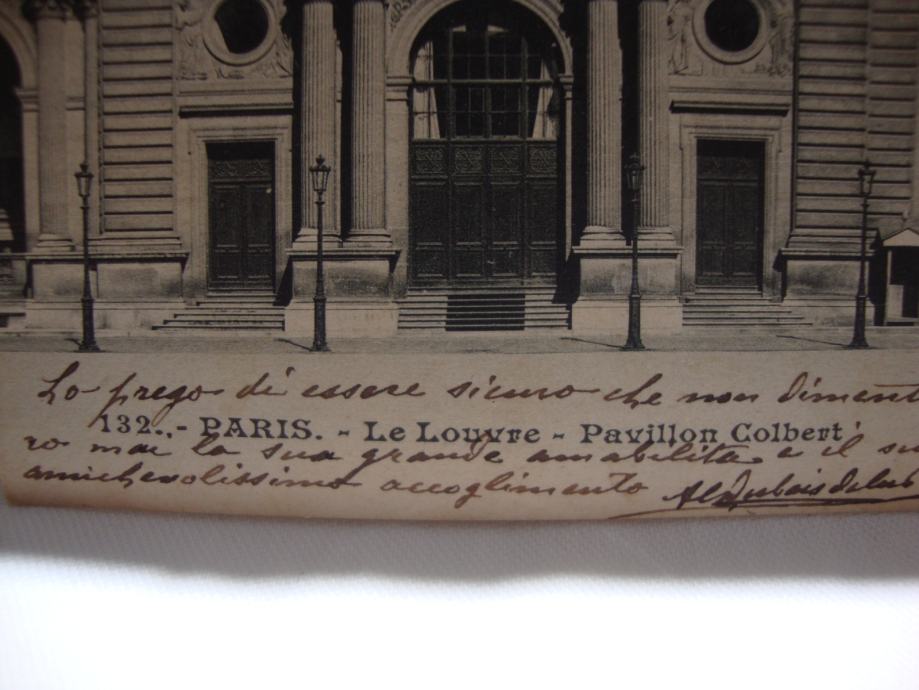 Lo prego di essere sicuro che non diment
132.,- PARIS. - Le Louvre - Pavillon Colbert
ro mai la sua grande amabilità e il su
amichevolissimo accoglimento